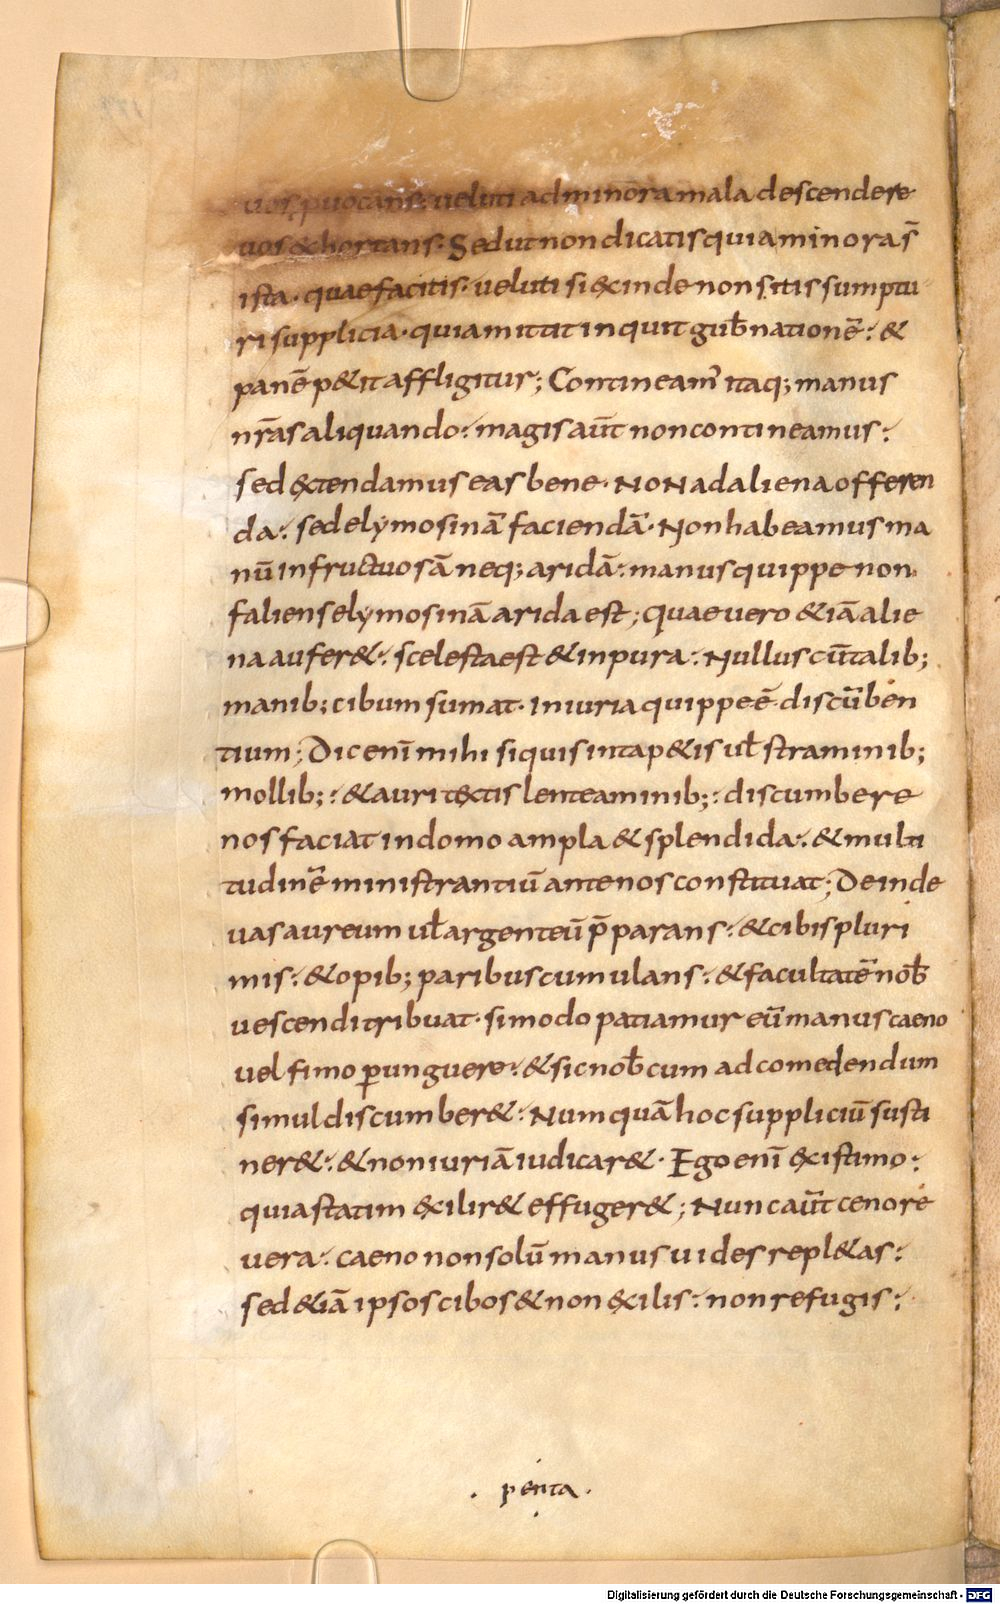 uos ꝓuocans: ueluti adminora mala descendere
uos &hortans. Sedut non dicatis quia minora s̄
ista. quae facitis. ueluti si &xinde non sitis sumptu
ri supplicia. quia mittit inquit gub̄nationē: &
panē p&it affligitur; Contineam' itaq; manus
nr̄as aliquando: magis aūt non contineamus:
sed &xtendamus eas bene. NoN ad aliena offeren
da: sed elymosinā faciendā. Non habeamus ma
nū infructuosā neq; aridā: manus quippe non
faliens elymosinā arida est; Quae uero &iā alie
na aufer&: scelesta est & inpura: Nullus cū talib;
manib; cibum sumat. iniuria quippe ē discūben
tium; Dic enī mihi si quis in tap&is ul̄ straminib;
mollib;: & auri t&xtis lenteaminib;: discumbere
nos faciat in domo ampla & splendida: & multi
tudinē ministrantiū ante nos constituat; Deinde
uas aureum ul̄ argenteū p̄parans: & cibis pluri
mis: & opib; paribus cumulans: & facultatē nob̄
uescendi tribuat. si modo patiamur eū manus caeno
uel fimo ꝑunguere: & sic nob̄cum ad comedendum
simul discumber&: Numquā hoc suppliciū susti
ner&: & non iuriā iudicar&. Ego enī &xistimo:
quia statim &xilir& effuger&; Nunc aūt ceno re
uera: caeno non solū manus uides repl&as:
sed &iā ipsos cibos & non &xilis: non refugis:
. penta .
Digitalisierung gefördert durch die Deutsche Forschungsgemeinschaft - DFG